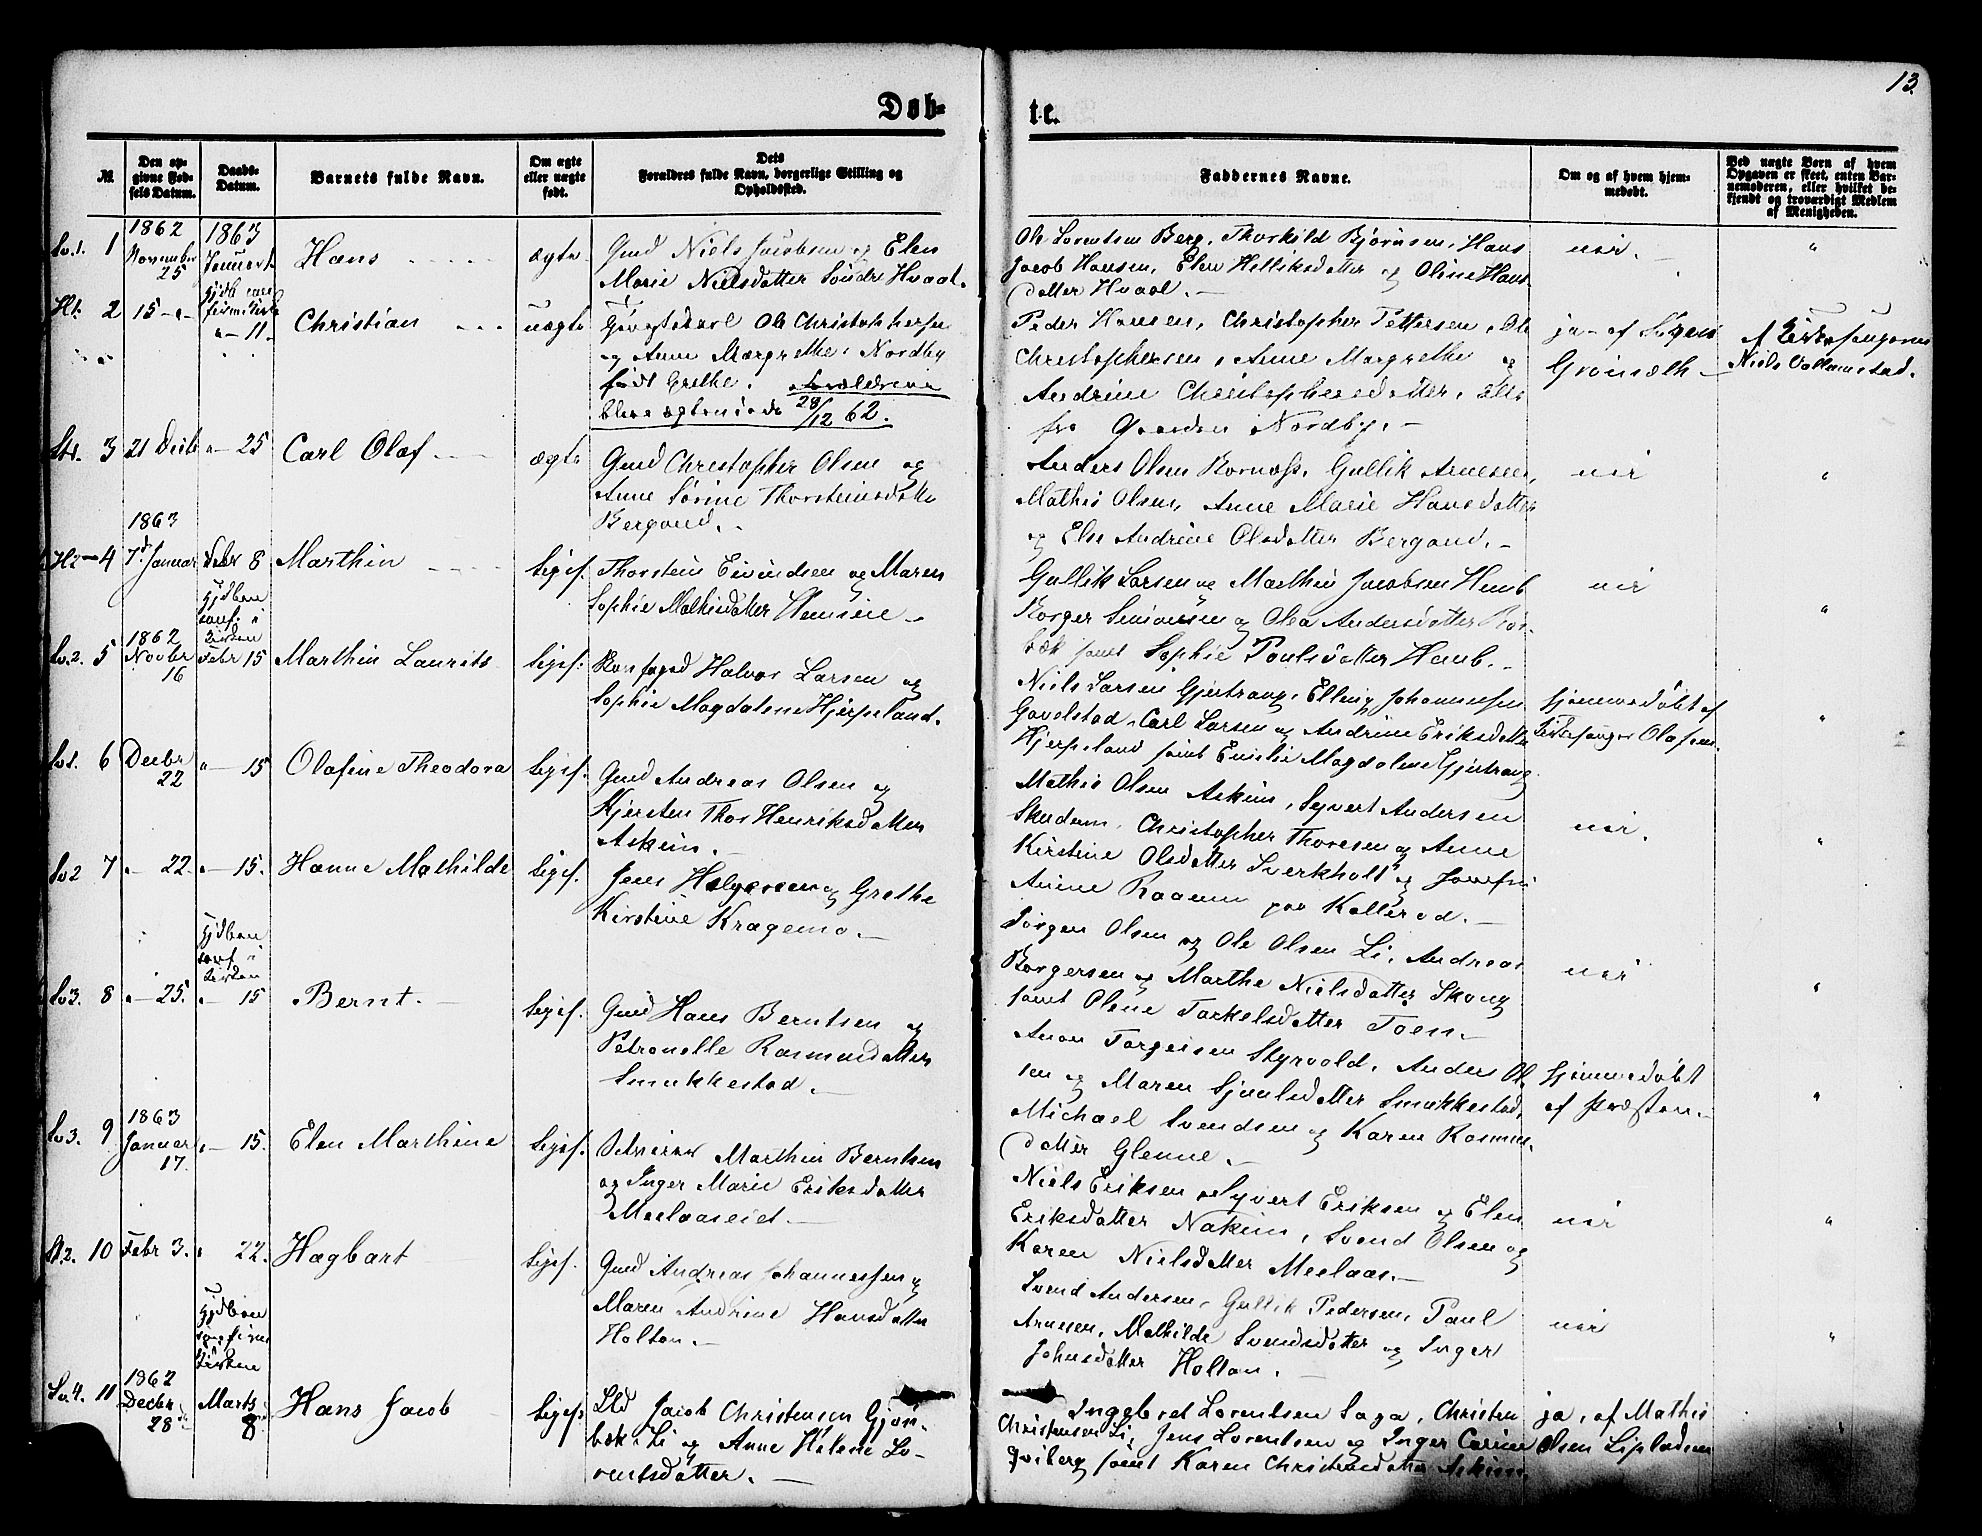 13.
Døb-
te.
№
Den op-
givne Fød-
sels Datum.
Daabs-
Datum.
Barnets fulde Navn.
Om ægte
eller uægte
født.
Dets
Forældres fulde Navn, borgerlige Stilling og
Opholdssted.
Faddernes Navne.
Om og af hvem hjem-
medøbt.
Ved uægte Børn af hvem
Opgaven er skeet, enten Bar-
nemoderen, eller hvilket be-
kjendt og troværdigt Medlem
af Menigheden.
Sv.1. 1
1862
November
25
1863
Januar
Hans
ægte
Gmd Niels Jacobsen og Elen
Marie Nielsdatter Søndre Hvaal.
Ole Lorentsen Berg, Thorkild Bjørnsen, Hans
Jacob Hansen, Elen Helliksdatter og Oline Hans
datter Hvaal.
nei.
"
2
15
11.
Christian
uægte
Ole Christophersen
og Anne Margrethe Nordby
født Grethe. Forældrene
bleve ægteviede 28/12 62.
Peder Hansen, Christopher Pettersen, Ole
Christophersen, Anne Margrethe og
Andrine Christophersdatter, alle
fra Gaarden Nordby.
ja - af
af Kirkesangeren
Niels
3
21 Decbr
" - 25
Carl Olaf
ægte
Gmd Christopher Olsen og
Anne Sørine Thorsteinsdatter
Bergand.
Anders Olsen Kornæss, Gullik Arnesen,
Mathis Olsen, Anne Marie Hansdatter
og Else Andrine Olsdatter Bergand.
nei
"
4
1863
7de Januar
Febr 8
Marthin
ligesf.
Thorstein Eivindsen og Maren
Sophie Mathisdatter
Gullik Larsen og Marthin Jacobsen Hemb
Borger Simonsen og Olea Andersdatter
bæk samt Sophie Paulsdatter Hemb.
nei
"
Sv.2. 5
1862
Novbr
16
Kirken
Febr 15
Marthin Laurits
ligesf.
Halvor Larsen og
Sophie Magdalene Hjerpeland.
Niels Larsen Gjertrang, Elling Johannessen
Gavelstad, Carl Larsen og Andrine Eriksdatter
Hjerpeland samt Emilie Magdalene Gjertrang
hjemmedøbt af
Kirkesanger Olafsen.
"
Sv1. 6
Decbr
22
" - 15
Olafine Theodora
ligesf.
Gmd Andreas Olsen og
Kjersten Thor Henriksdatter
Askim.
Mathis Olsen Askim, Syvert Andersen
Christopher Thoresen og Anne
Kirstine Olsdatter Sverkholt og
nei.
"
Sv2 7
" - 22.
" - 15.
Hanne Mathilde
ligesf.
Jens Helgersen og Grethe
Kirstine Kragemo.
Jørgen Olsen og Ole Olsen Li, Andreas
Borgersen og Marthe Nielsdatter Skoug
samt Olene Torkelsdatter Toen.
nei
"
Sv3. 8
" - 25.
" - 15
Bernt.
ligesf.
Gmd Hans Berntsen og
Petronelle Rasmusdatter
Smukkestad.
Aron Torgersen Styrvold, Anders Ol-
sen og Maren Sjovlsdatter Smukkestad,
Michael Svendsen og Karen Rasmus-
datter Glenne.
hjemmedøbt
af Præsten.
"
Sv3. 9
1863
Januar
17.
" - 15.
Elen Marthine
ligesf.
Marthin Berntsen
og Inger Marie Eriksdatter
Meelaaseiet.
Niels Eriksen og Syvert Eriksen og Elen
Eriksdatter Nakim, Svend Olsen og
Karen Nielsdatter Meelaas.
nei
"
10
Febr 3.
" 22.
Hagbart
ligesf.
Gmd Andreas Johannessen og
Maren Andrine Hansdatter
Holtan.
Svend Andersen, Gullik Pedersen, Paul
Arnesen, Mathilde Svendsdatter og Inger
Johnsdatter Holtan.
nei
"
Sv.4. 11
1862
Decbr
28
Marts
8
Hans Jacob
ligesf.
Jacob Christensen
bæk i Li og Anne Helene Lo-
rentsdatter.
Ingebret Lorentsen Saga, Christen
Christensen Li, Jens Lorentsen og Inger Carine
Qviberg samt Karen Christensdatter Askim.
ja, af Mathis
Olsen